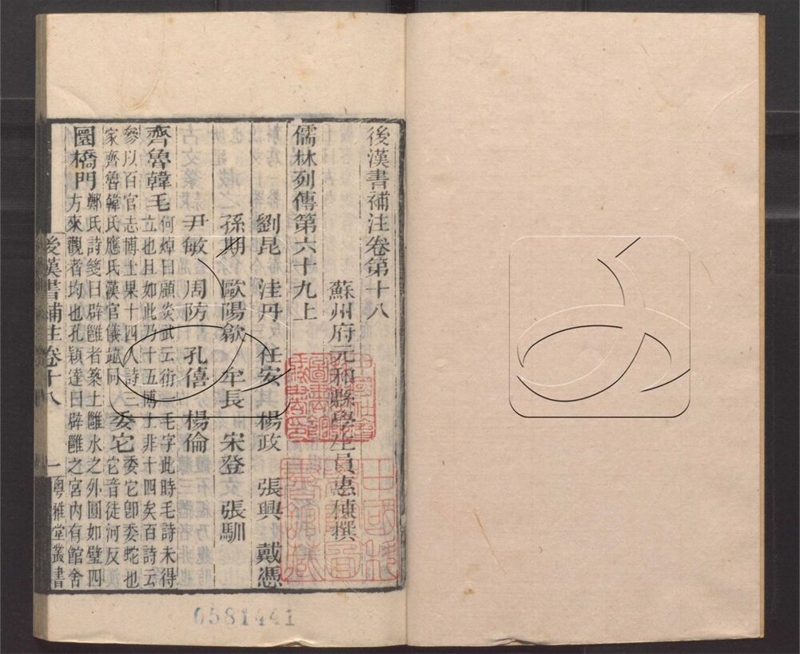 後漢書補注卷第十八
蘇州府元和縣學生員惠棟撰
儒林列傳第六十九上
劉昆 洼丹 任安 楊政 張興 戴憑
孫期 歐陽歙 牟長 宋登 張馴
尹敏 周防 孔僖 楊倫
齊魯韓毛
何焯曰顧炎武云衍一毛字此時毛詩未得
立也且如此乃十五博士非十四矣百詩云
參以百官志博士果十四人詩三
家齊魯韓氏應氏漢官儀
委它
委它卽委蛇也
它音徒河反
圜橋門
鄭氏詩箋曰辟雝者築土雝水之外圓如璧四
方來觀者均也孔穎達曰辟雝之宮內有館舍
後漢書補注卷十八 一 粵雅堂叢書
0581441